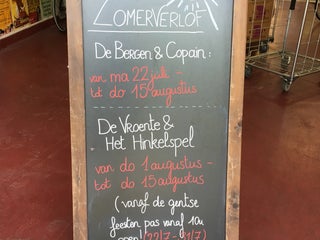 ZOMERVERLOF
De Bergen & Copain:
van ma 22 juli -
tot do 15 augustus
De Vroente &
Het Hinkelspel
van do 1 augustus -
tot do 15 augustus
(vanaf de gentse
feesten pas vanaf 10u
open (22/7 - 31/7)